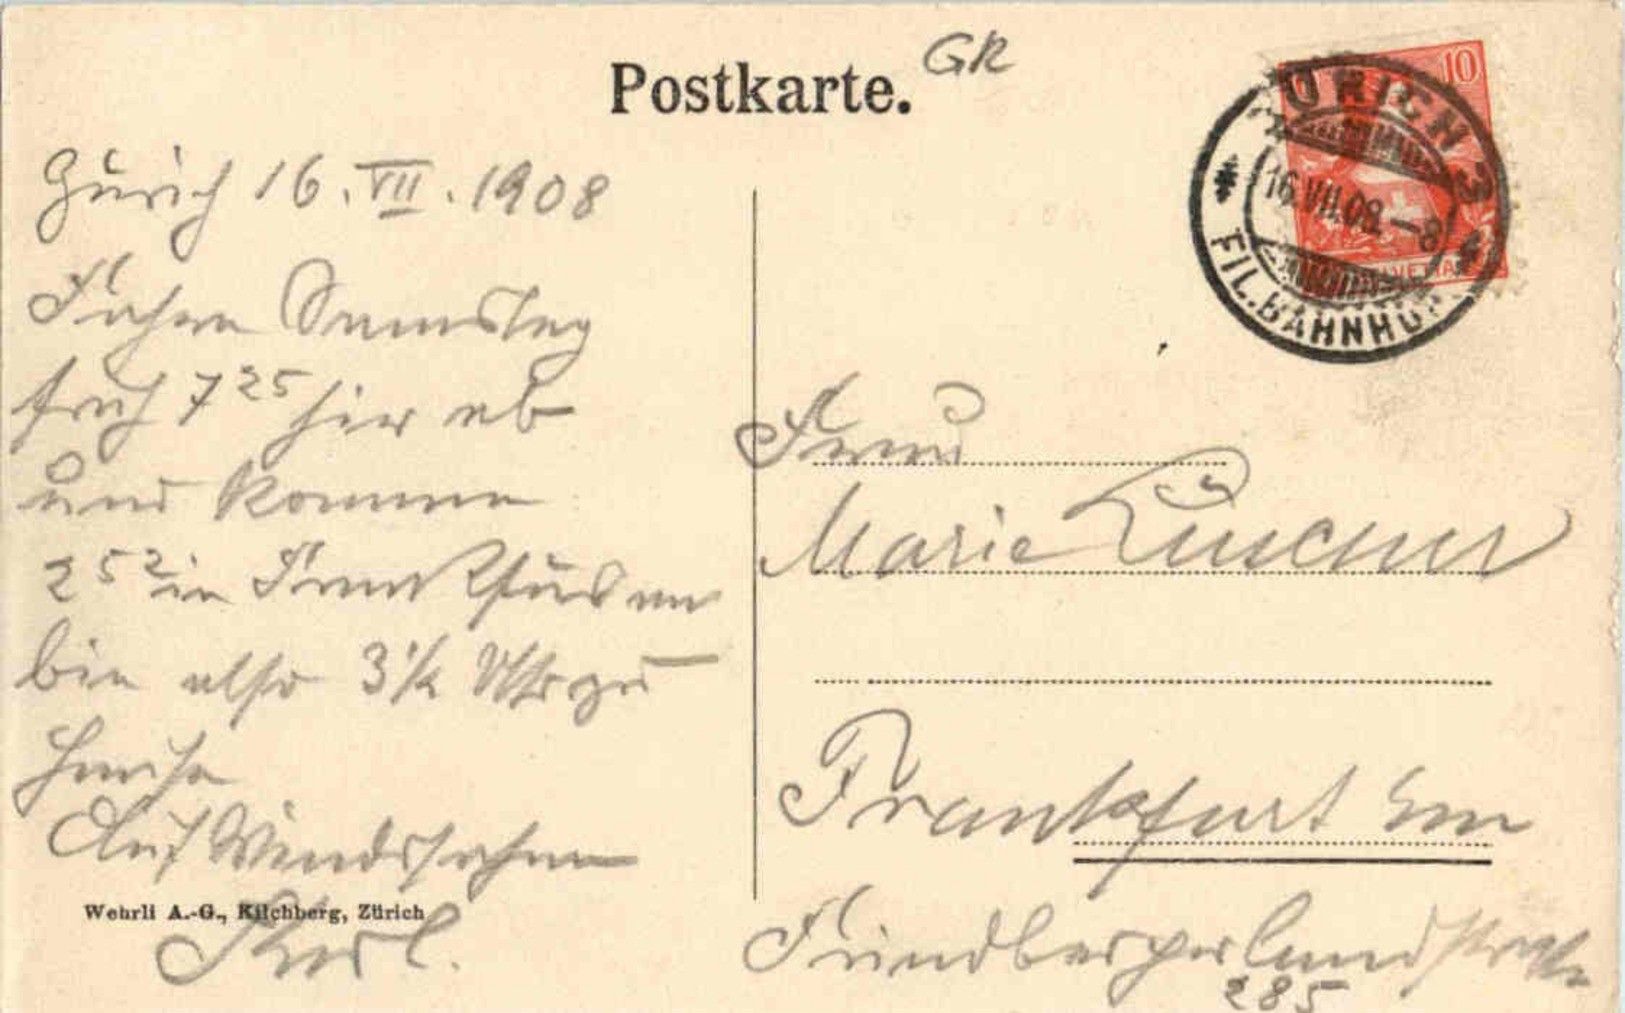 Postkarte.
GR
10
ZÜRICH 3
16.VII.08.–8
FIL.BAHNHOF
HELVETIA
Zürich 16. VII. 1908
Fahre Samstag
früh 7 25 hier ab
und komme
2 52 in Frankfurt an
bin also 3 1/2 Uhr zu
Hause
Auf Wiedersehen
Karl.
Wehrli A.-G., Kilchberg, Zürich
Frau
Marie
Frankfurt a/m
Friedbergerlandstrasse
285